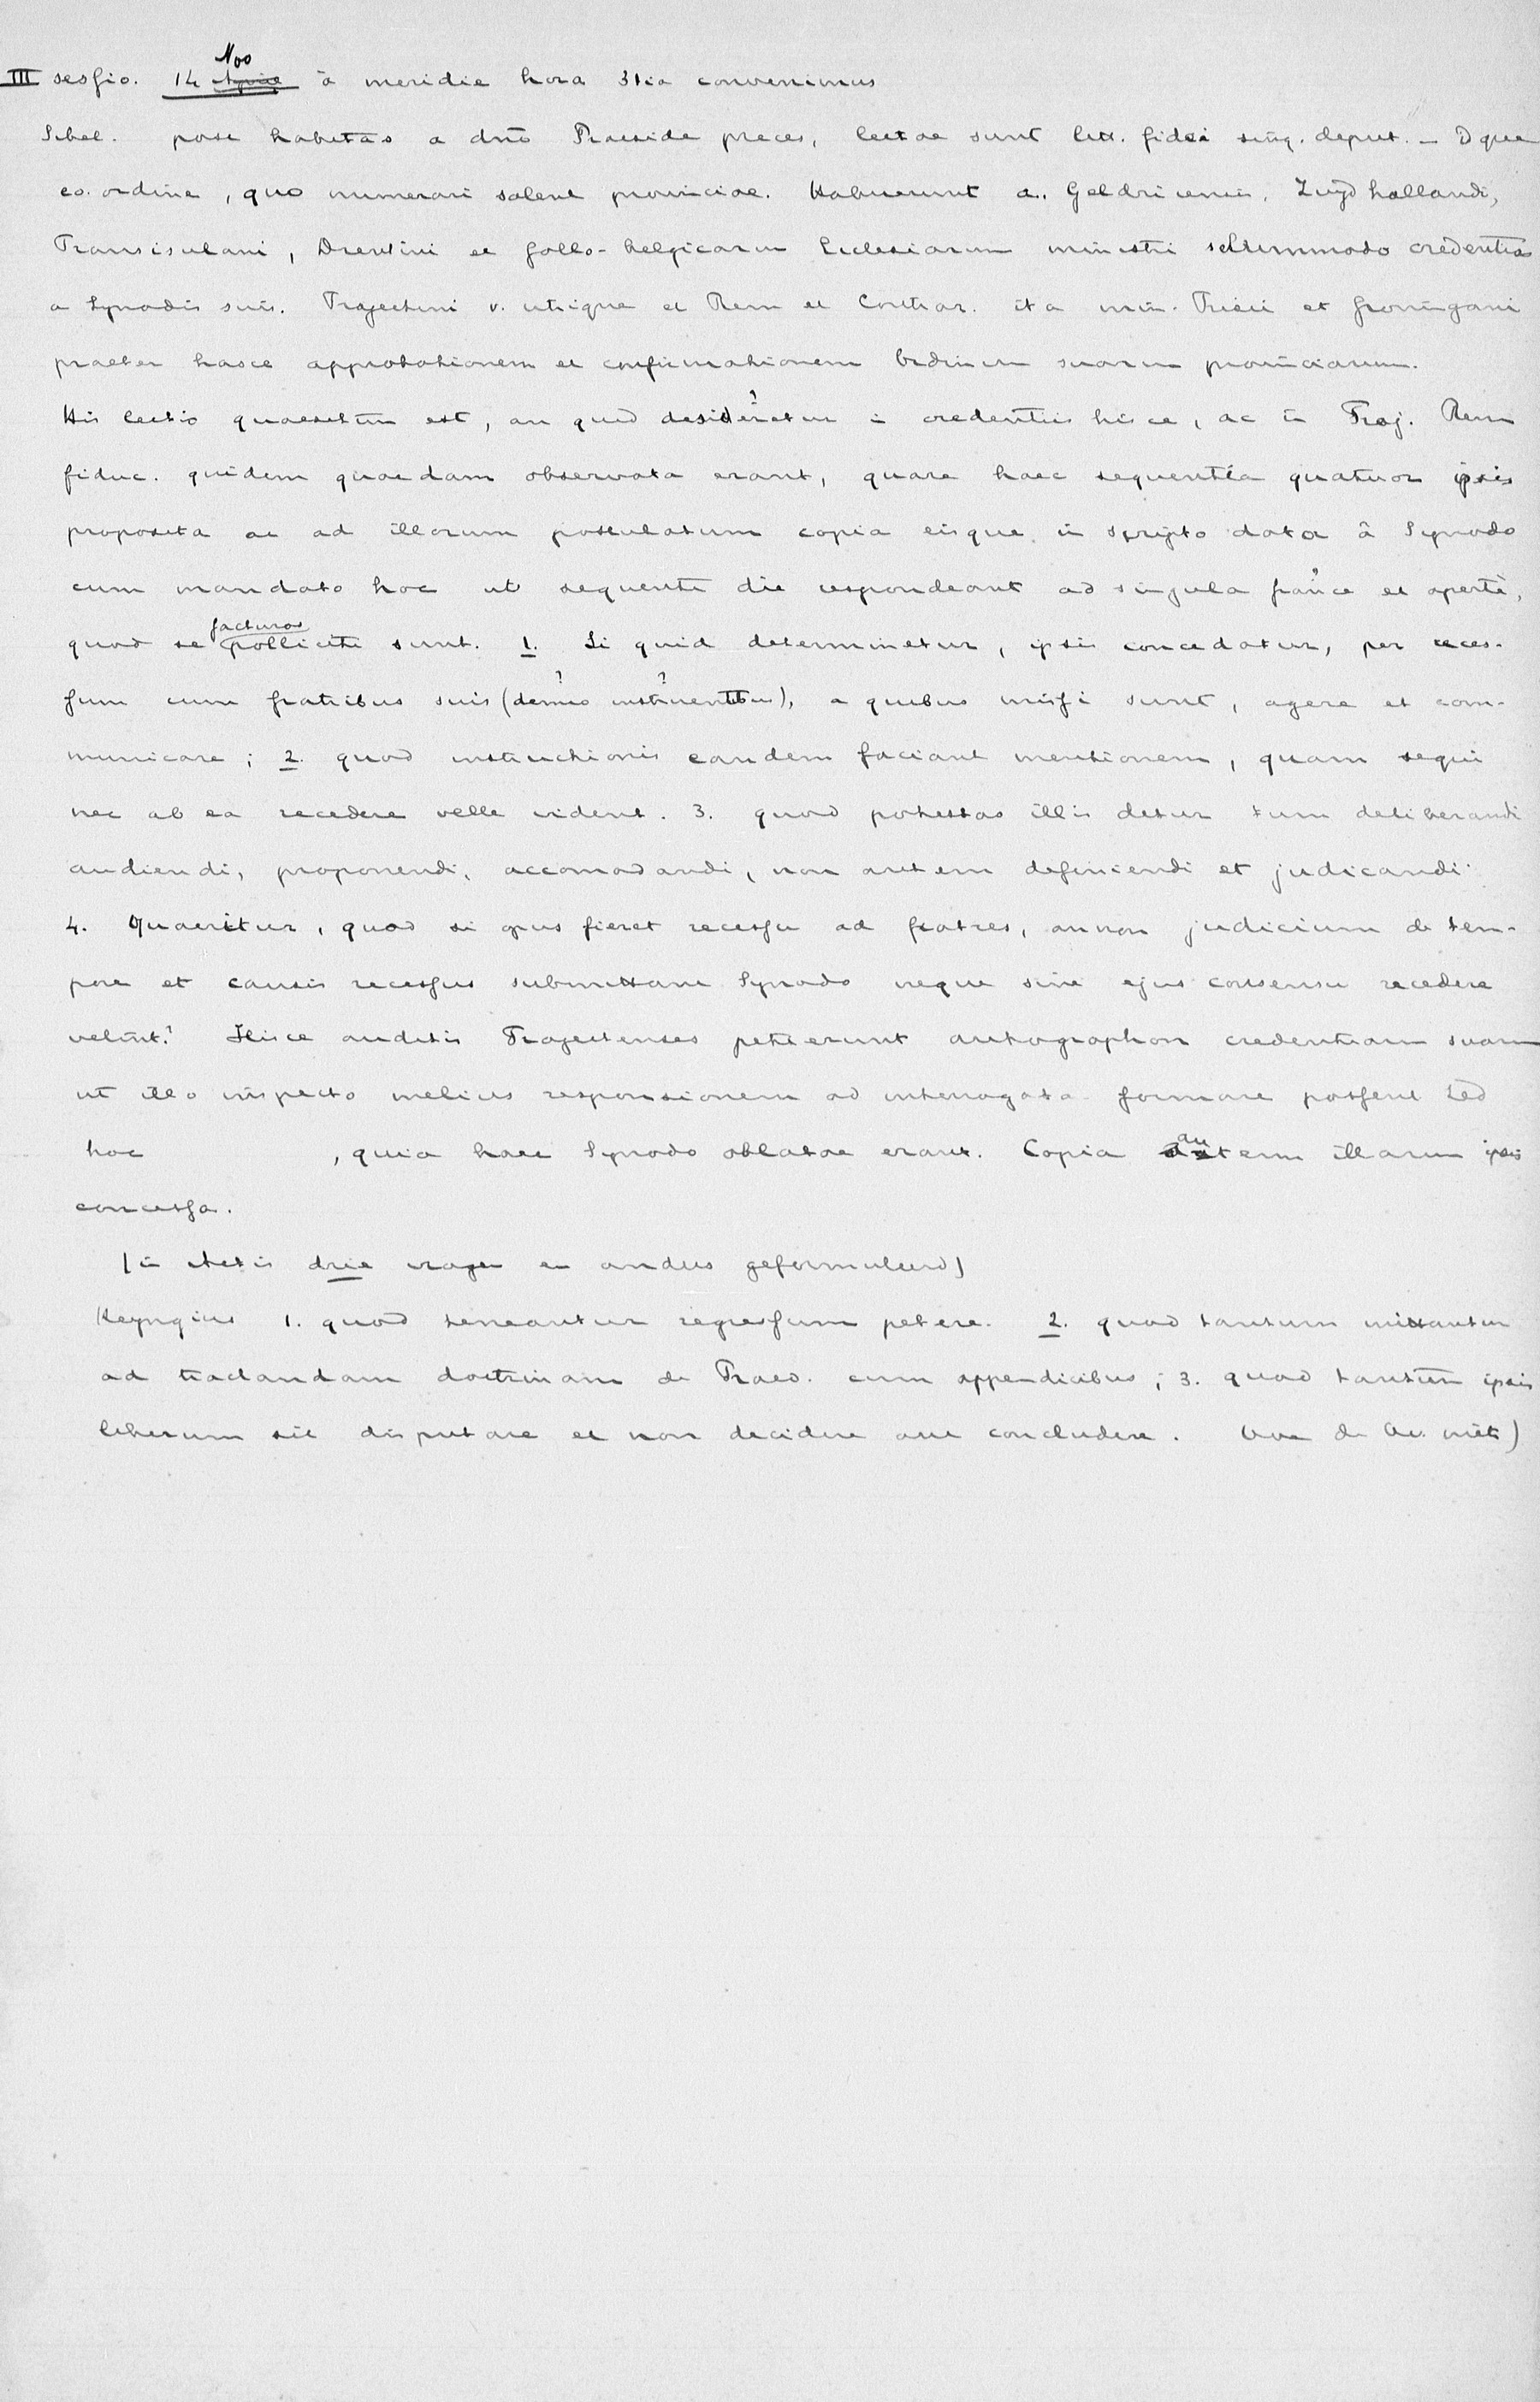 III sesſio. 14 Nov à meridie hora 3tia convenimus
Sibel. post habitas a dno Praeside preces, lectae sunt litt. fidei sing. deput. – Dque
eo ordine, quo numerari solent provinciae. Habuerunt a. Geldricenses, Zuijdhollandi,
Transisulani, Drentini et Gallo-belgicarum Ecclesiarum ministri soltummodo credentias
a Synodis suis. Trajectini v. utrique et Rem et Contrar. ita min. Frisii et Groningani
praeter hasce approbationem et confirmationem Ordinum suarum provinciarum.
His lectis quaesitum est, an quid desideretur in credentiis hisce, ac in Traj. Rem
fiduc. quidem quaedam observata erant, quare haec sequentia quatuor ipsis
proposita ac ad illorum postulatum copia eisque in scripto data à Synodo
cum mandato hoc ut sequenti die respondeant ad singula france et apertè,
quod se facturos polliciti sunt. 1. Si quid determinetur, ipsis concedatur, per reces-
ſum cum fratribus suis (demus instruentibus), a quibus misſi sunt, agere et com-
municare; 2. quod instructionis eandem faciant mentionem, quam sequi
nec ab ea recedere velle vident. 3. quod potestas illis detur tum deliberandi
audiendi, proponendi, accomodandi, non autem definiendi et judicandi
4. Quaeritur, quod si opus fieret recesſu ad fratres, annon judicium de tem-
pore et causis recesſus submittant Synodo neque sine ejus consensu recedere
velint? Hisce auditis Trajectenses petierunt autographon credentiam suam
ut illo inspecto melius responsionem ad interrogata formare posſent Sed
hoc , quia haec Synodo oblatae erant. Copia autem illarum ipsis
concesſa.
(in Actis drie vragen en anders geformuleerd)
Heyngius 1. quod teneantur regresſum petere. 2. quod tantum mittantur
ad tractandam doctrinam de Praed. cum appendicibus; 3. quod tantum ipsis
liberum sit disputare et non decidere aut concludere. de Av. niet)